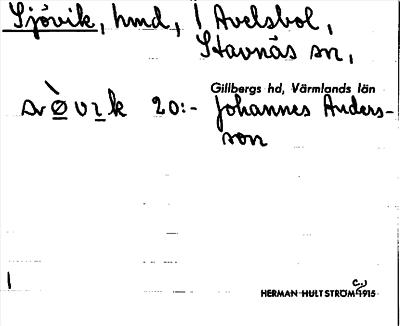 Sjövik, hmd, i Avelsbol,
Stavnäs sn,
Gillbergs hd, Värmlands län
20:- Johannes Anders-
son
HERMAN HULTSTRÖM 1915